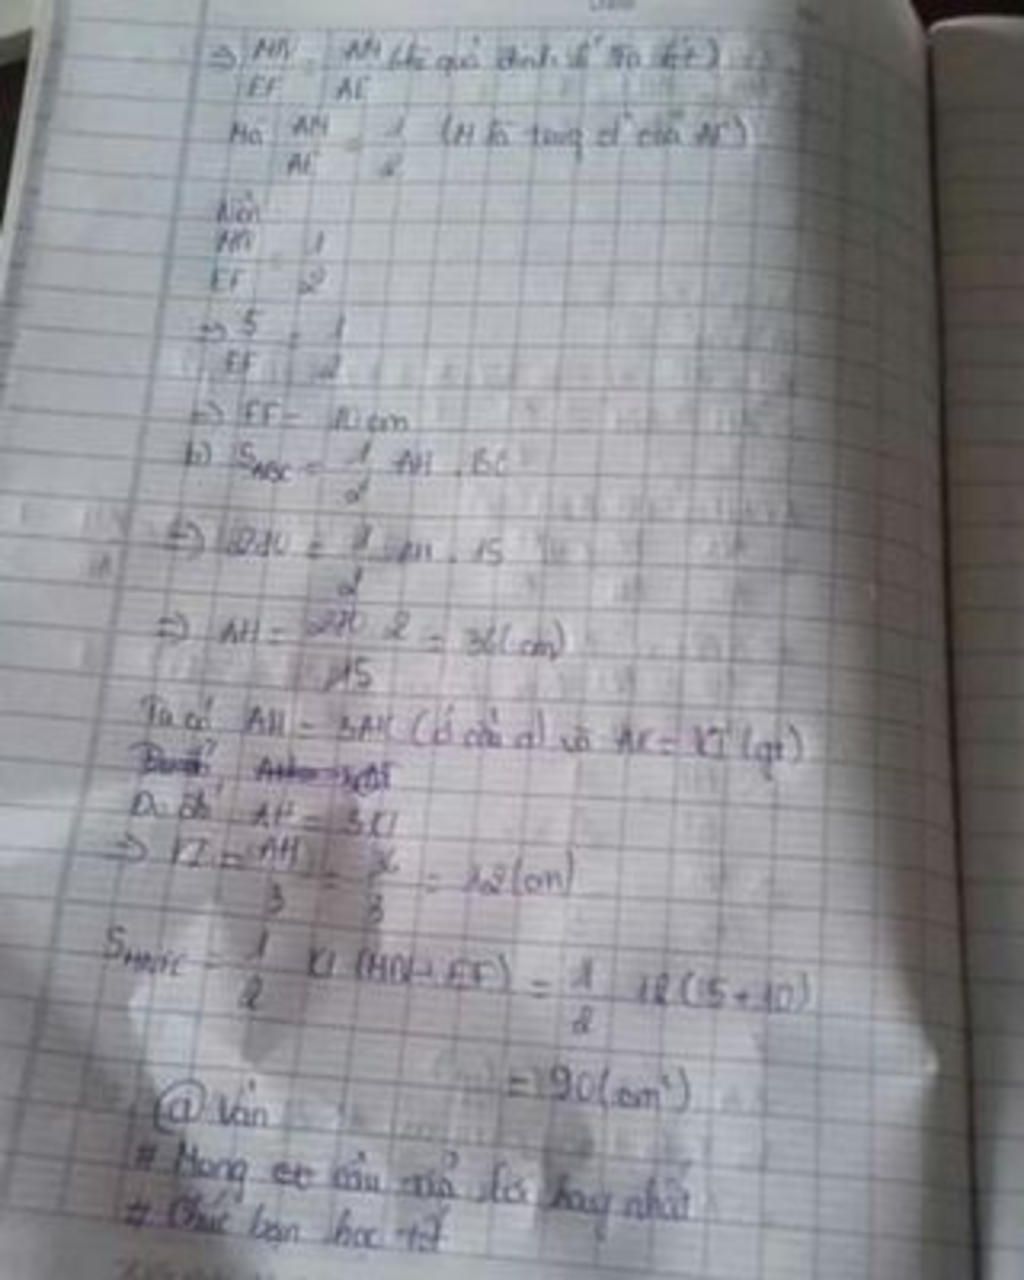 => MN/EF = AM/AE (hệ quả định lí Ta lét)
Mà AM/AE = 1/2 (M là trung đ' của AE)
Nên
MN/EF = 1/2
=> 5/EF = 1/2
=> EF = 10 cm
b) S ABC = 1/2 AH . BC
=> 270 = 1/2 AH . 15
=> AH = 270 . 2/15 = 36 (cm)
Ta có AH = 3AK (ở câu a) và AK = KI (gt)
Do đó AH = 3KI
=> KI = AH/3 = 36/3 = 12 (cm)
S MNFE = 1/2 KI (MN + EF) = 1/2 12 (5 + 10)
= 90 (cm²)
@ Vân
# Mong đc câu trả lời hay nhất
# Chúc bạn học tốt